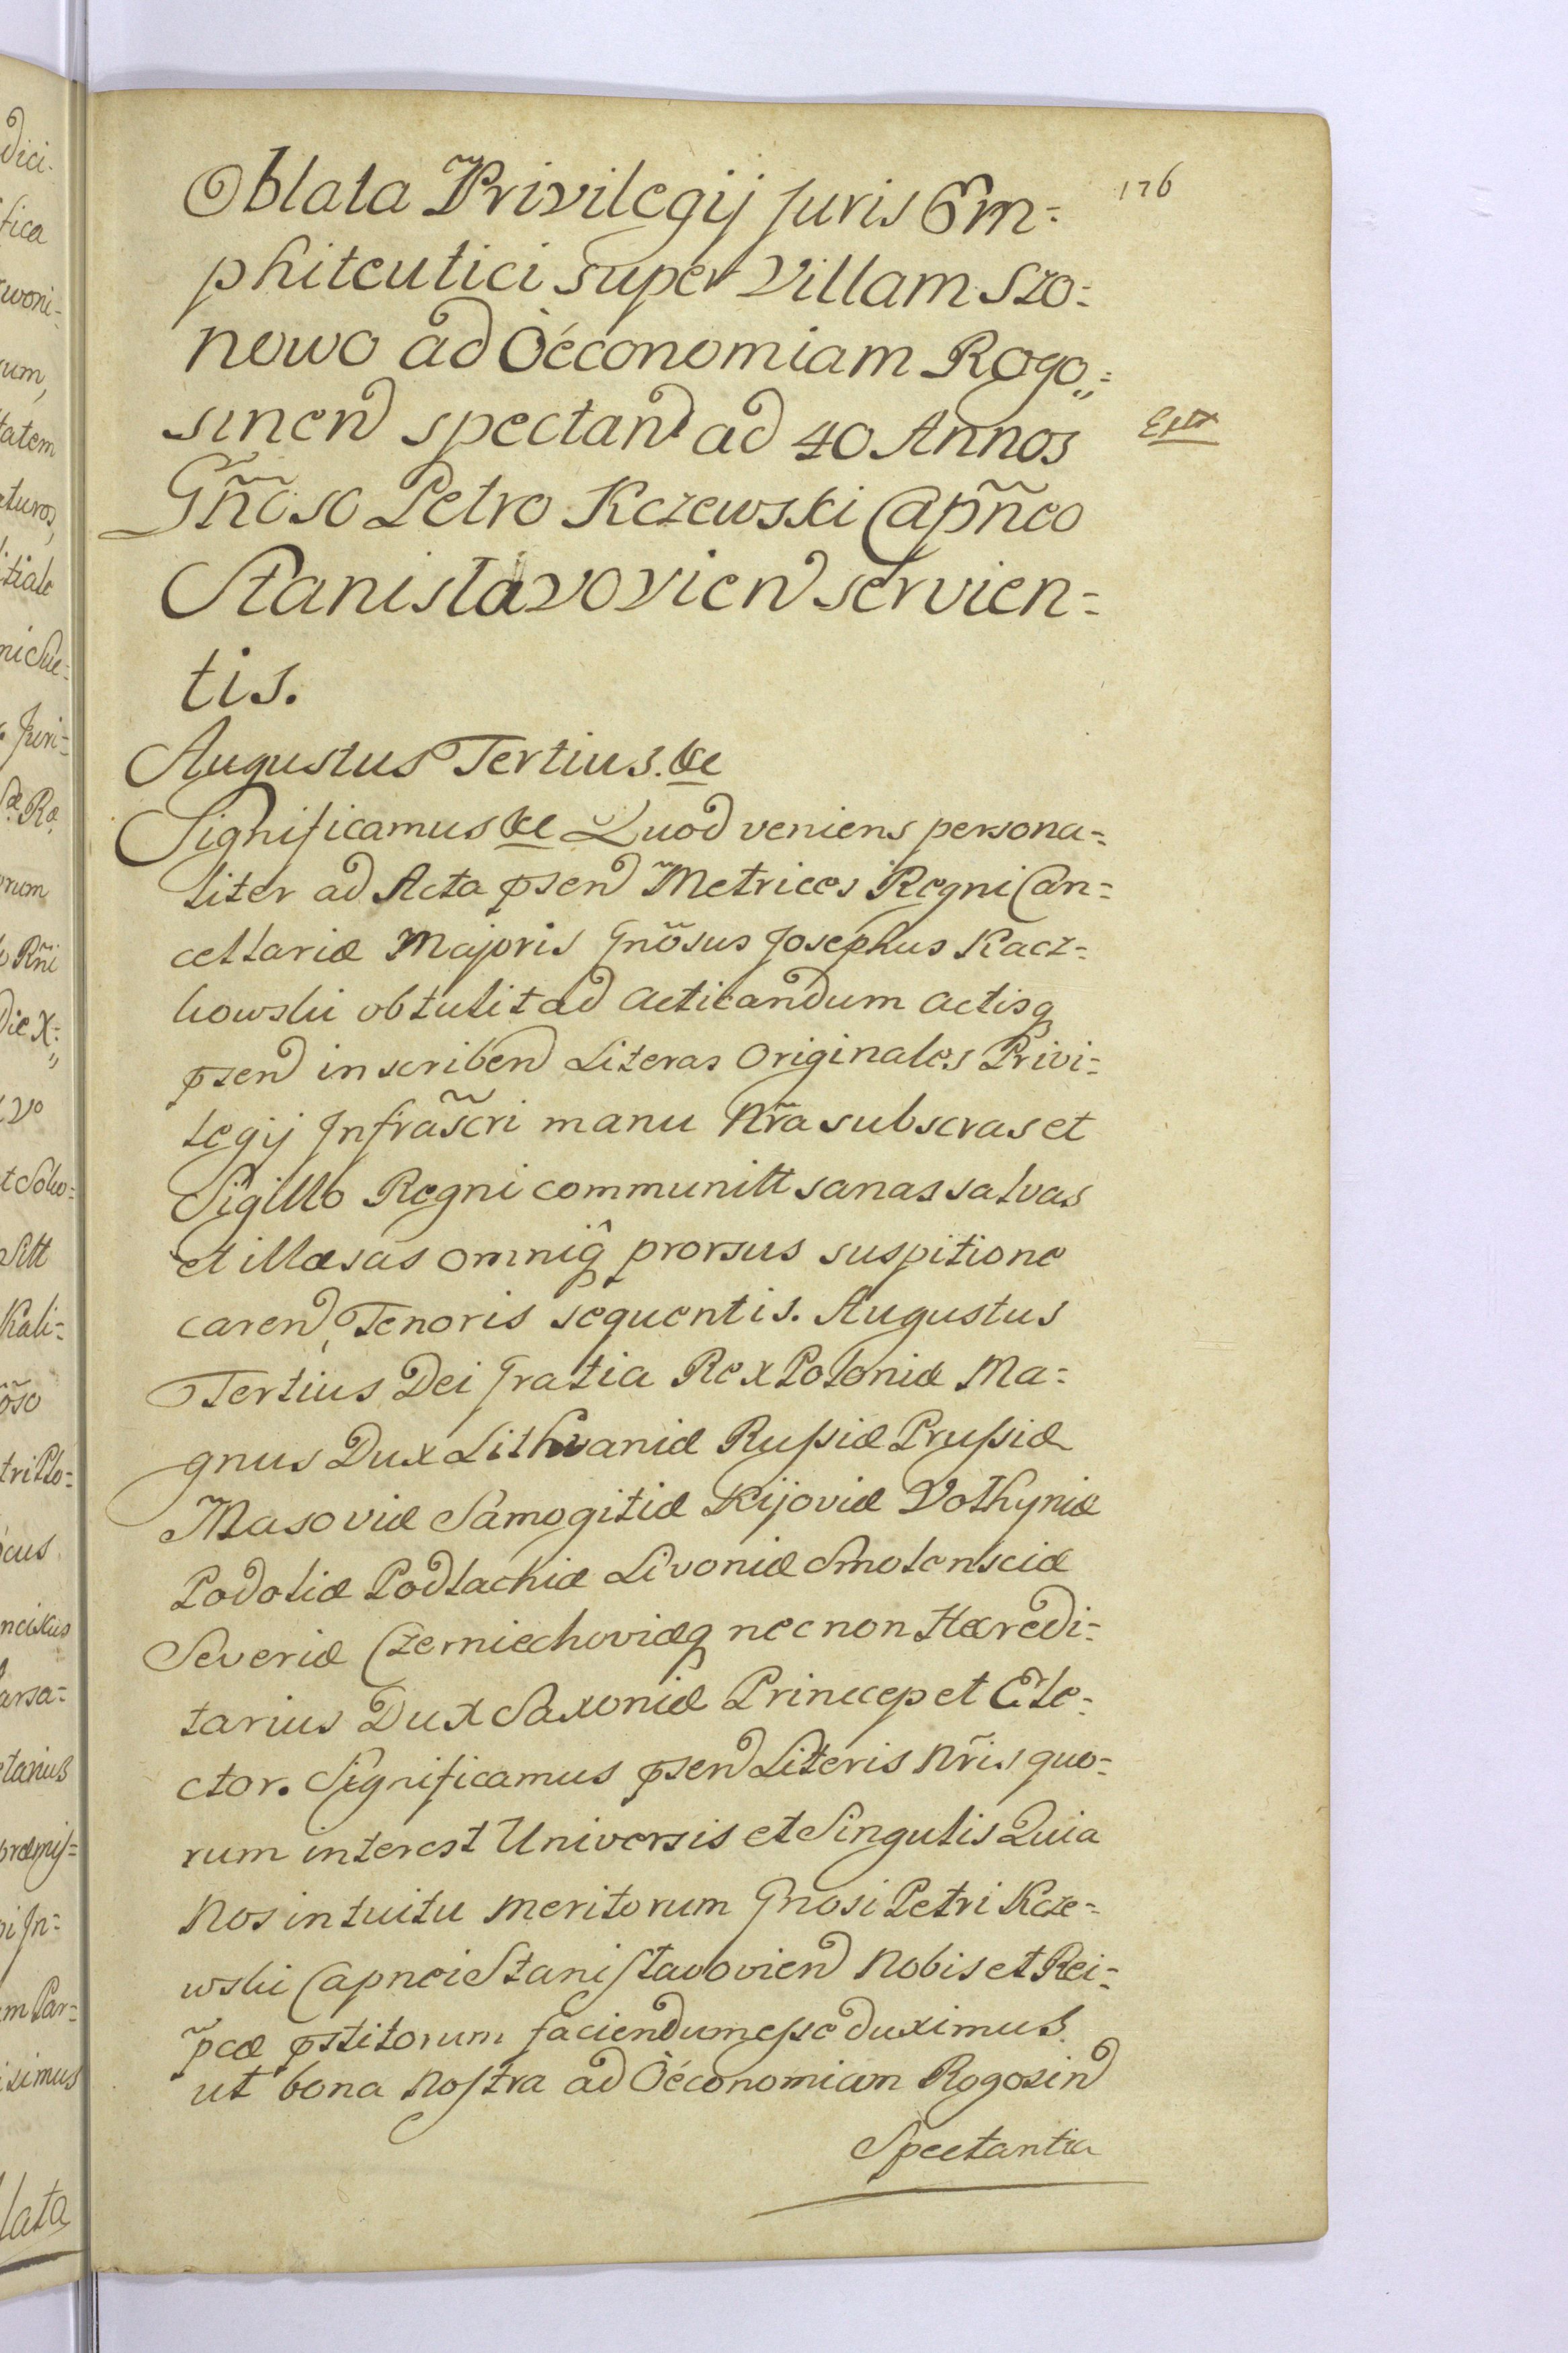 176
Oblata Privilegij Juris Em=
phiteutici super Villam Szo=
nowo ad Oéconomiam Rogo=
sinen spectan ad 40 Annos
Extr
Gñoso Petro Kczewski Capñeo
Stanislavovien servien=
tis.
Augustus Tertius. &c
Significamus &c Quod veniens persona=
liter ad Acta psen Metrices Regni Can=
cellariæ Majoris Gnõsus Josephus Kacz=
kowski obtulit ad acticandum actisq
psen inscriben Literas Originales Privi=
legij Infrascri manu Nr̃a subscras et
Sigillo Regni communitt sanas salvas
et illæsas omniq̃ prorsus suspitione
caren, Tenoris sequentis. Augustus
Tertius Dei Gratia Rex Poloniæ Ma=
gnus Dux Lithvaniæ Rußiæ Prußiæ
Masoviæ Samogitiæ Kijoviæ Volhyniæ
Podoliæ Podlachiæ Livoniæ Smolensciæ
Severiæ Czerniechoviæq nec non Hæredi=
tarius Dux Saxoniæ Princep et Ele=
ctor. Significamus psen Literis Nr̃is quo=
rum interest Universis et Singulis Quia
Nos intuitu meritorum Gnosi Petri Kcze=
wski Capnei Stanislavovien Nobis et Rei=
p̃cæ pstitorum faciendum eße duximus
ut bona Nostra ad Oéconomiam Rogozin
Spectantia